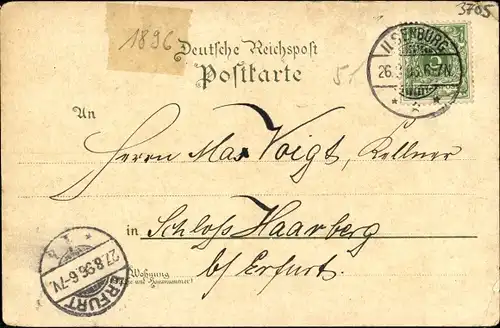 3705
1896
Deutsche Reichspost
Postkarte
51
ILSENBURG
26. 96. 6-7N.
An
Herrn Max Voigt, Kellner
in Schloss Haarberg
b/ Erfurt.
Wohnung
und Hausnummer)
27.8.96.6-7N.
ERFURT